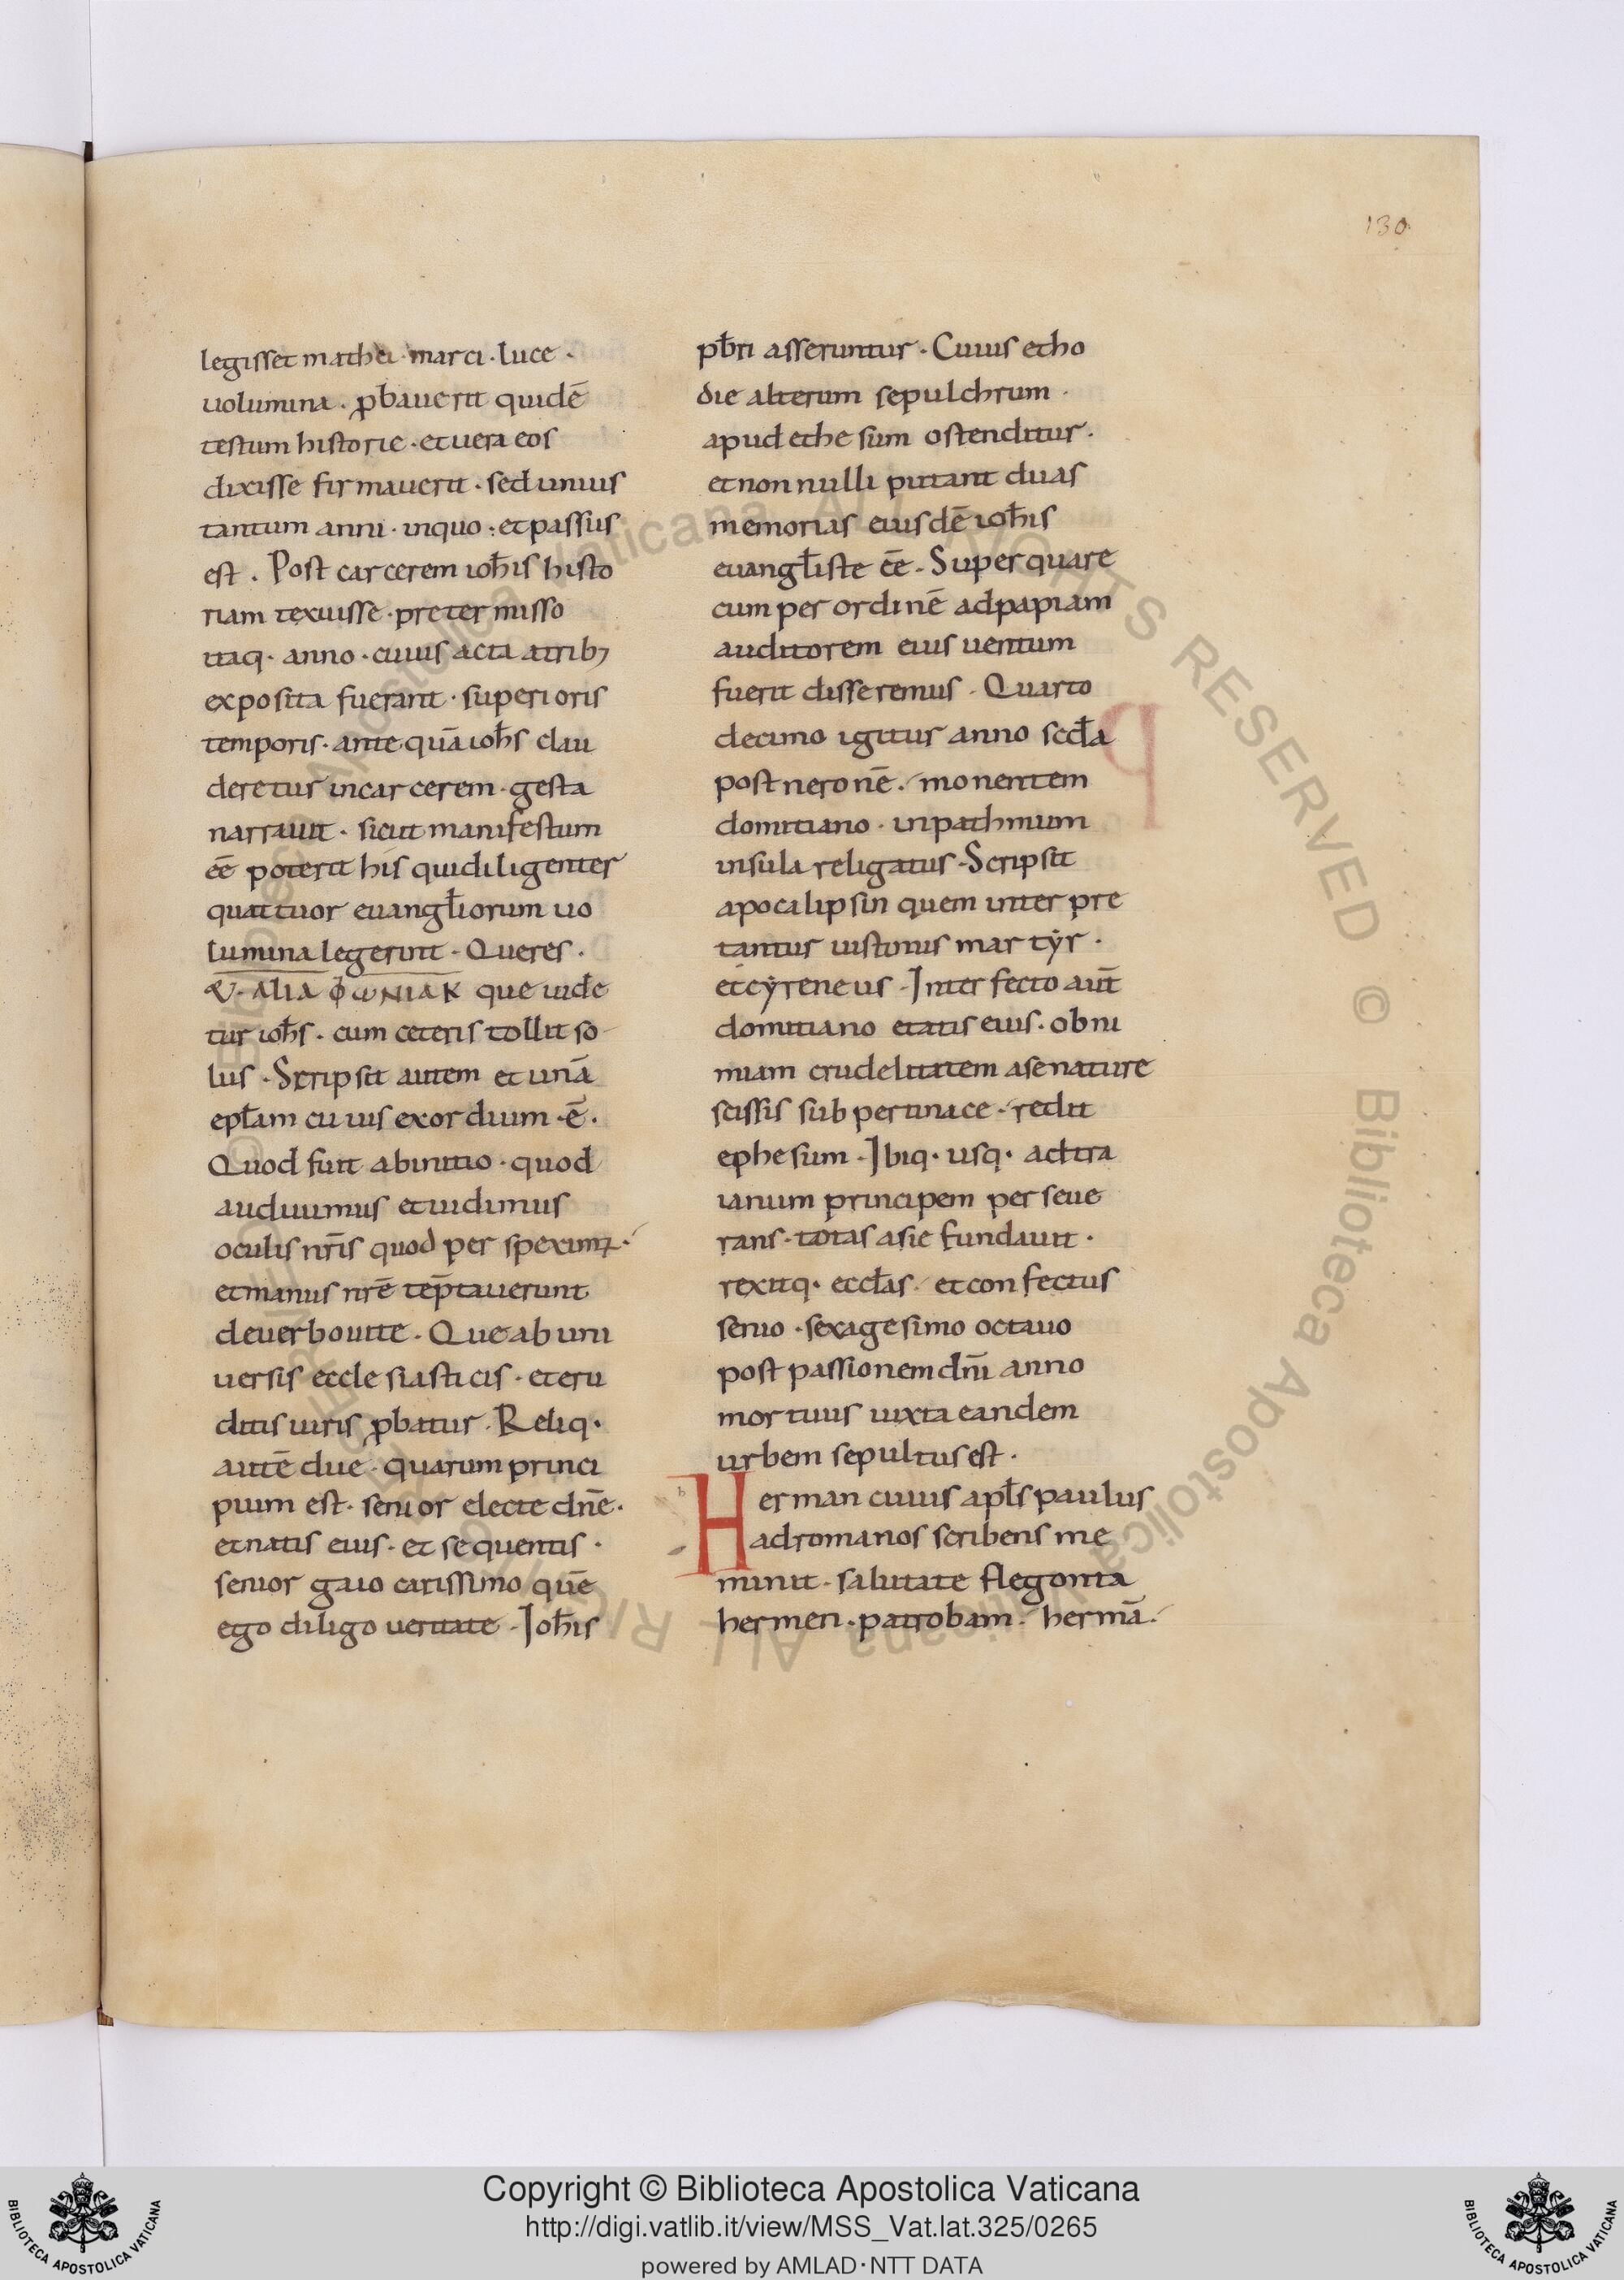 130
legisset mathei · marci · luce ·
uolumina · ꝓbauerit quidē
testum historie · et uera eos
dixisse firmauerit · sed unius
tantum anni · in quo · et passus
est · Post carcerem ioħis histo
riam texuisse · preter misso
itaq· anno · cuius acta a trib;
exposita fuerant · superioris
temporis · ante quā ioħs clau
deretur in carcerem · gesta
narrauit · sicut manifestum
eē poterit his qui diligenter
quattuor euangl̄iorum uo
lumina legerint · Queres ·
ꝶ· ΑλιΑ ΦωΝΙΑΚ que uide
tur ioħs · cum ceteris tollit so
lus · Scripsit autem et unā
epl̄am cuius exordium · ē ·
Quod fuit ab initio · quod
audiuimus et uidimus
oculis nr̄is quod perspeximꝰ ·
et manus nrē tēptauerunt
de uerbo uite · Que ab uni
uersis ecclesiasticis · et eru
ditis uiris ꝓbatur · Reliq·
autē due · quarum princi
pium est · senior electe dn̄e ·
et natis eius · et sequentis ·
senior gaio carissimo quē
ego diligo ueritate · Ioħis
pb̄ri asseruntur · Cuius et ho
die alterum sepulchrum ·
apud ethesum ostenditur ·
et nonnulli putant duas
memorias eiusdē ioħis
euangl̄iste eē · Super qua re
cum per ordinē ad papiam
auditorem eius uentum
fuerit disseremus · Quarto
decimo igitur anno secl̄a
post neronē · monentem
domitiano · in pathmum
insula religatus · Scripsit
apocalipsin quem inter pre
tantur iustonus martẏr ·
et cẏreneus · Interfecto aut̄
domitiano etatis eius · ob ni
miam crudelitatem a senatu re
scissis sub pertinace · rediit
ephesum · Ibiq· usq· ad tra
ianum principem perseue
rans · totas asie fundauit ·
rexitq· eccl̄as · et confectus
senio · sexagesimo octauo
post passionem dn̄i anno
mortuus iuxta eandem
urbem sepultus est ·
Herman cuius apl̄s paulus
ad romanos scribens me
minit · salutate flegonta
hermen · patrobam · hermā ·
Copyright © Biblioteca Apostolica Vaticana
http://digi.vatlib.it/view/MSS_Vat.lat.325/0265
powered by AMLAD·NTT DATA
BIBLIOTECA APOSTOLICA VATICANA
BIBLIOTECA APOSTOLICA VATICANA